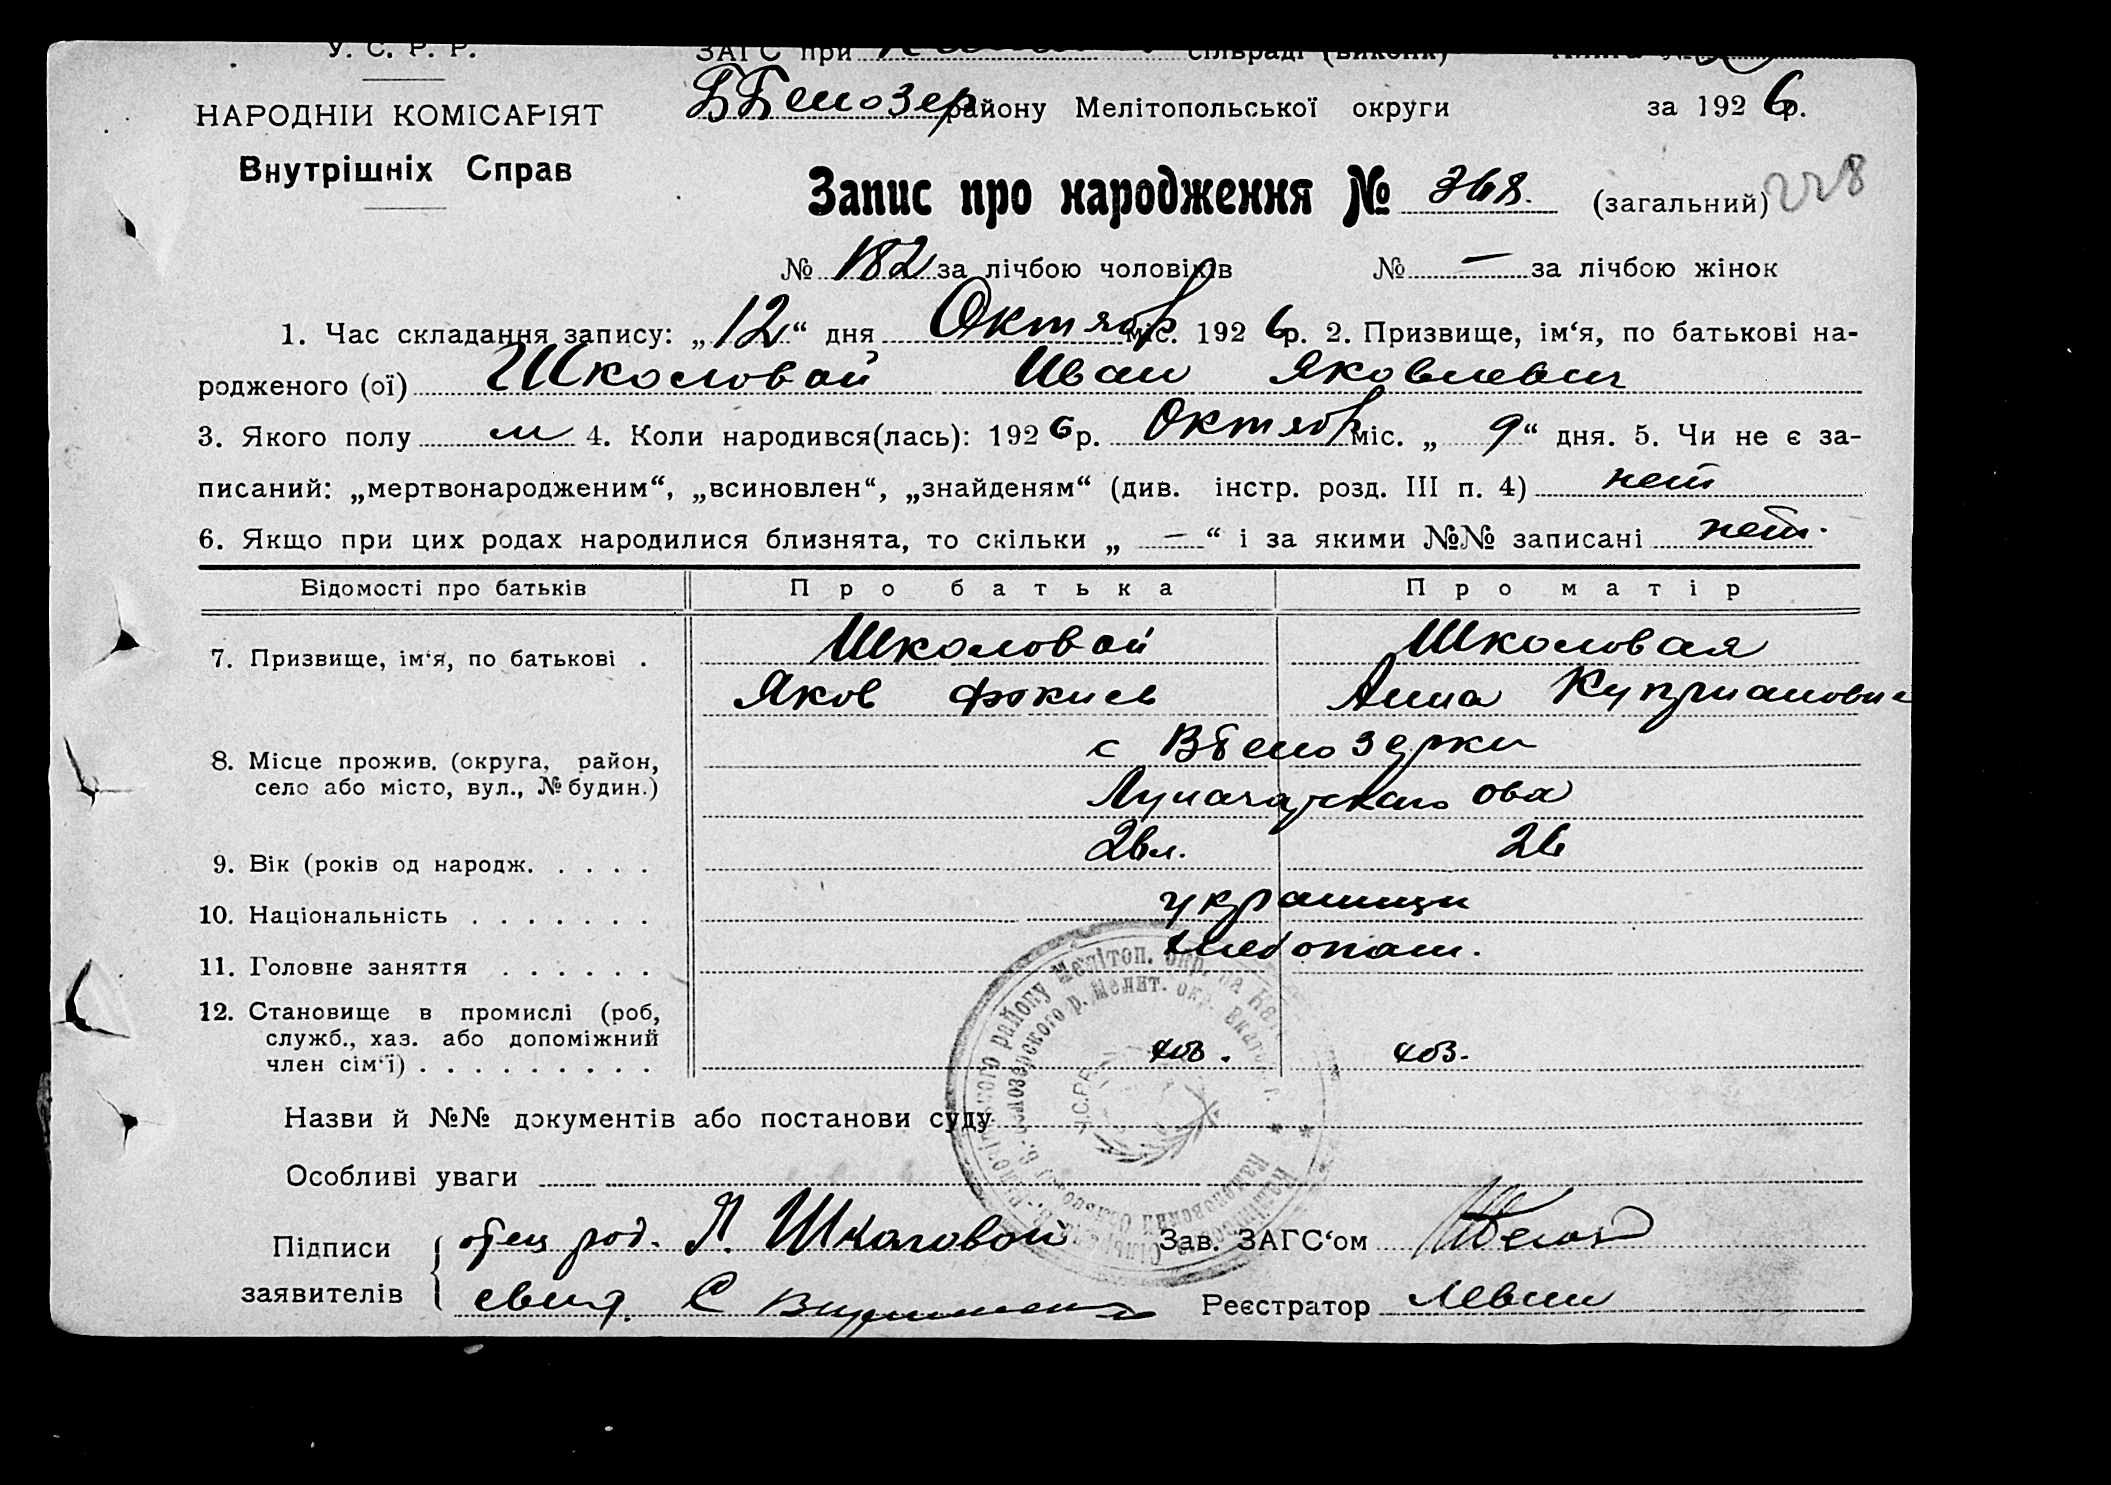 У. С. Р. Р.
ЗАГС при сільраді (виконк) Книга №
НАРОДНІЙ КОМІСАРІЯТ
Внутрішніх Справ
ББелозер району Мелітопольської округи за 1926 р.
Запис про народження № 368. (загальний) 228
№ 182 за лічбою чоловіків № — за лічбою жінок
1. Час складання запису: „12“ дня Октябр міс. 1926 р. 2. Призвище, ім‘я, по батькові на-
родженого (ої) Школовой Иван Яковлевич
3. Якого полу м 4. Коли народився(лась): 1926 р. Октябр міс. „9“ дня. 5. Чи не є за-
писаний: „мертвонародженим“, „всиновлен“, „знайденям“ (див. інстр. розд. III п. 4) нет
6. Якщо при цих родах народилися близнята, то скільки „—“ і за якими №№ записані нет.
Відомості про батьків Про батька Про матір
7. Призвище, ім‘я, по батькові . Школовой Школовая
Яков Фокиев Анна Куприановна
8. Місце прожив. (округа, район, с ВБелозерки
село або місто, вул., № будин.) Луначарскаго ова
9. Вік (років од народж. . . . . 26 л. 26
10. Національність . . . . . . . украинци
11. Головне заняття . . . . . . хлебопаш.
12. Становище в промислі (роб,
служб., хаз. або допоміжний
член сім‘ї) . . . . . . . . . хоз. хоз.
Назви й №№ документів або постанови суду
Особливі уваги
Підписи отец род. Я. Школовой Зав. ЗАГС‘ом
заявителів свид. С Реєстратор Левин
У.С.Р.Р.